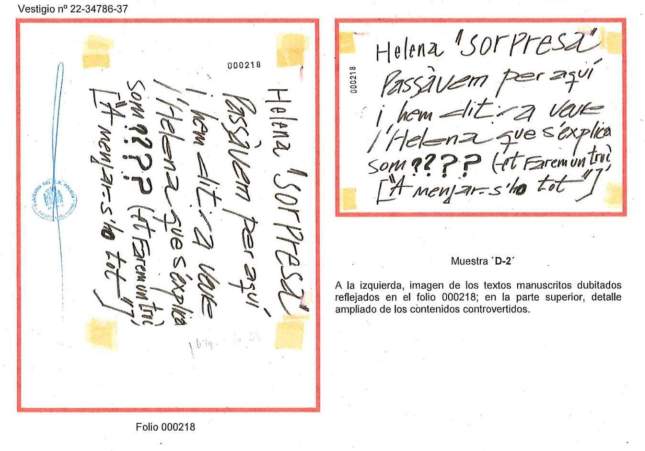 Vestigio nº 22-34786-37
000218
Helena "SORPRESA"
Passàvem per aquí
i hem dit: a veure
l'Helena que s'explica
som ???? (Et Farem un tri)
["A menjar-s'ho tot"]
Folio 000218
000218
Helena "SORPRESA"
Passàvem per aquí
i hem dit: a veure
l'Helena que s'explica
som ???? (Et Farem un tri)
["A menjar-s'ho tot"]
Muestra ´D-2´
A la izquierda, imagen de los textos manuscritos dubitados
reflejados en el folio 000218; en la parte superior, detalle
ampliado de los contenidos controvertidos.